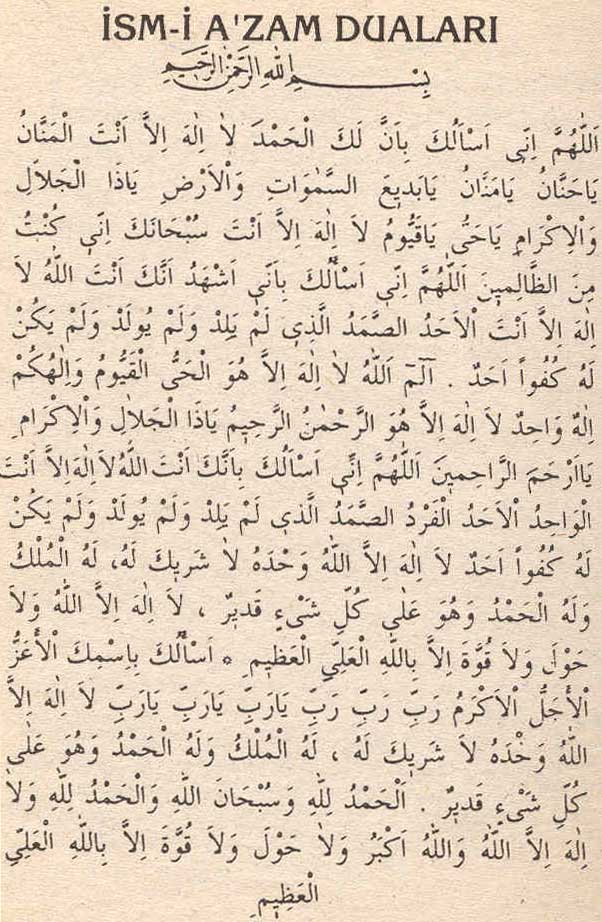 İSM-İ A'ZAM DUALARI
بِسْمِ اللهِ الرَّحْمٰنِ الرَّحِيمِ
اَللّٰهُمَّ اِنِّى اَسْاَلُكَ بِاَنَّ لَكَ الْحَمْدَ لَا اِلٰهَ اِلاَّ اَنْتَ الْمَنَّانُ
يَاحَنَّانُ يَامَنَّانُ يَابَدِيعَ السَّمٰوَاتِ وَالْاَرْضِ يَاذَا الْجَلاَلِ
وَالْاِكْرَامِ يَاحَىُّ يَاقَيُّومُ لاَ اِلٰهَ اِلاَّ اَنْتَ سُبْحَانَكَ اِنّىِ كُنْتُ
مِنَ الظَّالِمِينَ اَللّٰهُمَّ اِنّىِ اَسْأَلُكَ بِاَنّىِ اَشْهَدُ اَنَّكَ اَنْتَ اللهُ لاَ
اِلٰهَ اِلاَّ اَنْتَ الْاَحَدُ الصَّمَدُ الَّذِى لَمْ يَلِدْ وَلَمْ يُولَدْ وَلَمْ يَكُنْ
لَهُ كُفُواً اَحَدٌ . آلٓمٓ اَللهُ لاَ اِلٰهَ اِلاَّ هُوَ الْحَىُّ الْقَيُّومُ وَاِلٰهُكُمْ
اِلٰهٌ وَاحِدٌ لاَ اِلٰهَ اِلاَّ هُوَ الرَّحْمٰنُ الرَّحِيمُ يَاذَا الْجَلاَلِ وَالْاِكْرَامِ
يَااَرْحَمَ الرَّاحِمِينَ اَللّٰهُمَّ اِنِّى اَسْاَلُكَ بِاَنَّكَ اَنْتَ اللهُ لاَ اِلٰهَ اِلاَّ اَنْتَ
الْوَاحِدُ الْاَحَدُ الْفَرْدُ الصَّمَدُ الَّذِى لَمْ يَلِدْ وَلَمْ يُولَدْ وَلَمْ يَكُنْ
لَهُ كُفُواً اَحَدٌ لاَ اِلٰهَ اِلاَّ اللهُ وَحْدَهُ لاَ شَرِيكَ لَهُ، لَهُ الْمُلْكُ
وَلَهُ الْحَمْدُ وَهُوَ عَلٰى كُلِّ شَىْءٍ قَدِيرٌ ، لاَ اِلٰهَ اِلاَّ اللهُ وَلاَ
حَوْلَ وَلاَ قُوَّةَ اِلاَّ بِاللهِ الْعَلِيِّ الْعَظِيمِ ٥ اَسْأَلُكَ بِاسْمِكَ الْأَعَزُّ
الْأَجَلُّ الْاَكْرَمُ رَبِّ رَبِّ رَبِّ يَارَبِّ يَارَبِّ يَارَبِّ لاَ اِلٰهَ اِلاَّ
اللهُ وَحْدَهُ لاَ شَرِيكَ لَهُ ، لَهُ الْمُلْكُ وَلَهُ الْحَمْدُ وَهُوَ عَلٰى
كُلِّ شَىْءٍ قَدِيرٌ . اَلْحَمْدُ لِلّٰهِ وَسُبْحَانَ اللهِ وَالْحَمْدُ لِلّٰهِ وَلاَ
اِلٰهَ اِلاَّ اللهُ وَاللهُ اَكْبَرُ وَلاَ حَوْلَ وَلاَ قُوَّةَ اِلاَّ بِاللهِ الْعَلِيِّ
الْعَظِيمِ